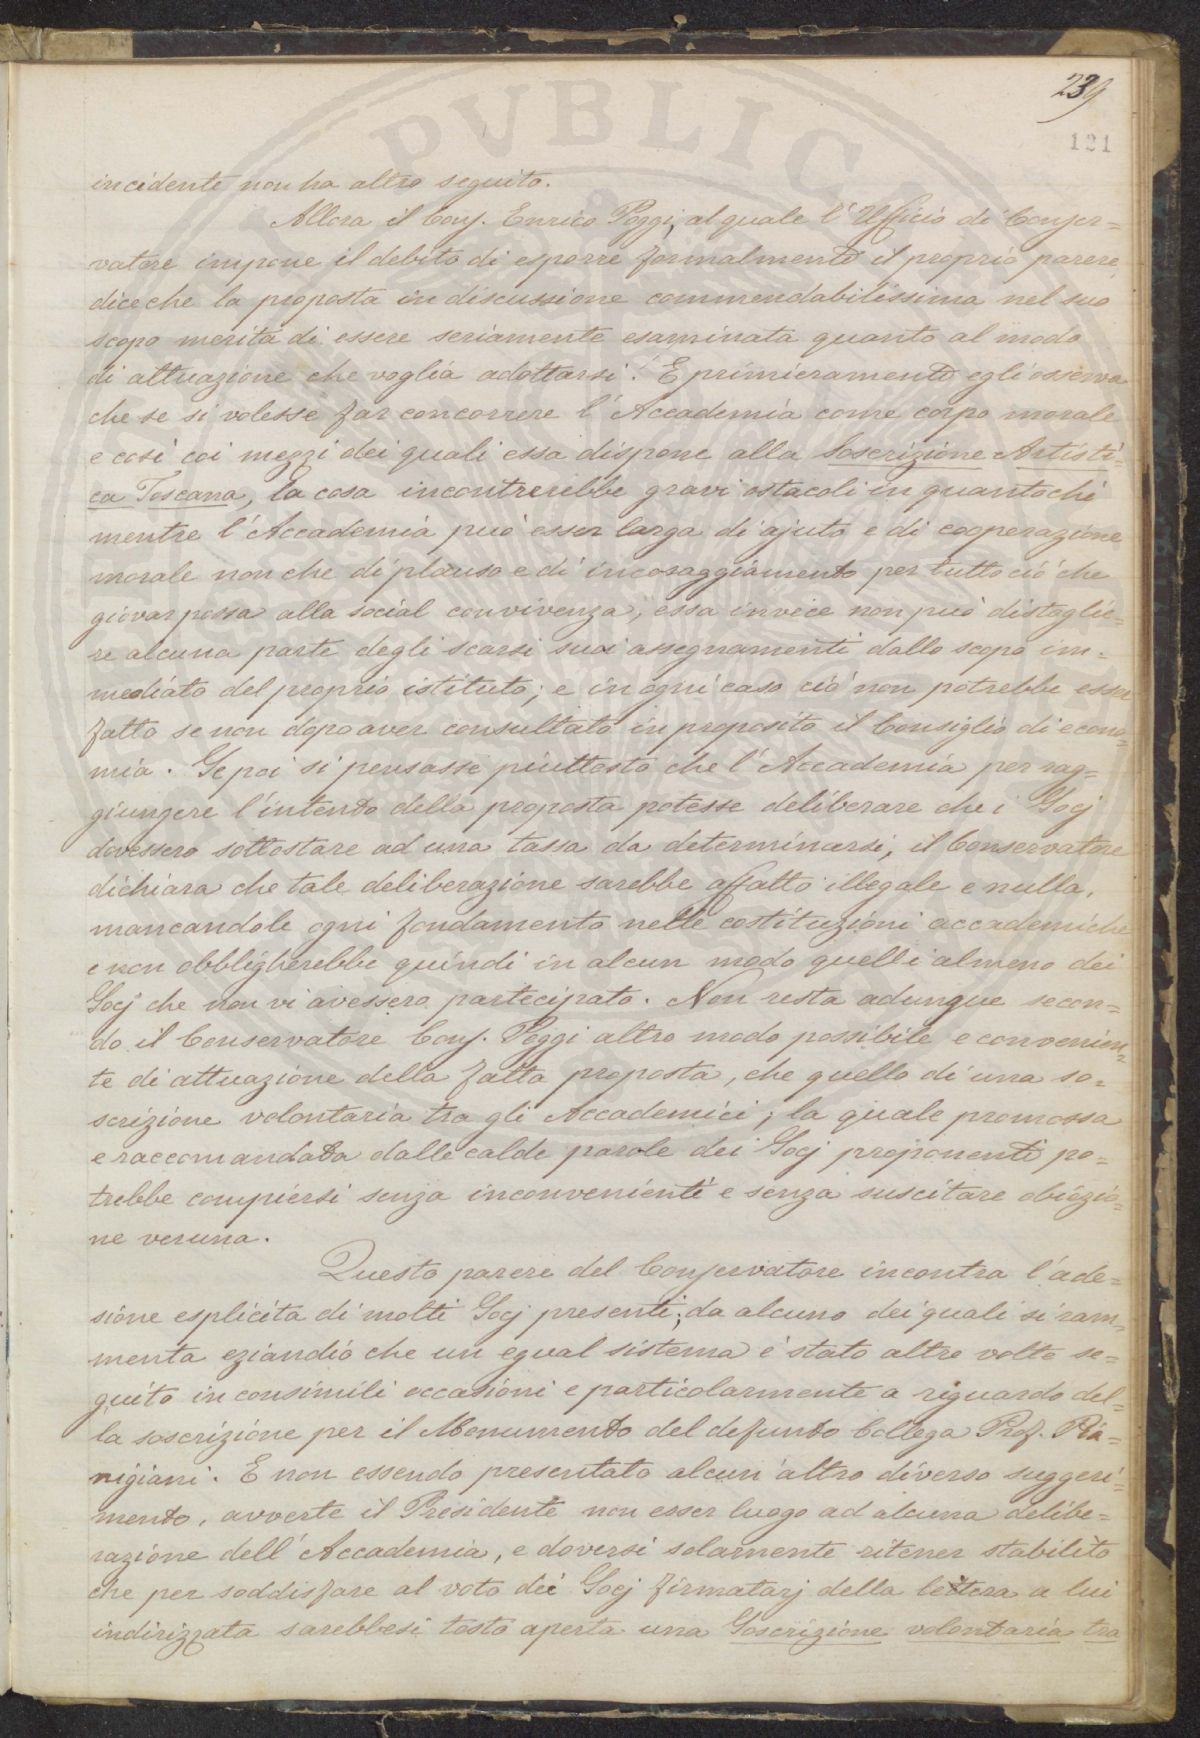 239
121
incidente non ha altro seguito.
Allora il Conf. Enrico Poggi, al quale l'Ufficio di Conser=
vatore impone il debito di esporre formalmente il proprio parere,
dice che la proposta in discussione commendabilissima nel suo
scopo merita di essere seriamente esaminata quanto al modo
di attuazione che voglia adottarsi. E primieramente egli osserva
che se si volesse far concorrere l'Accademia come corpo morale
e così coi mezzi dei quali essa dispone alla Soscrizione Artisti=
ca Toscana, la cosa incontrerebbe gravi ostacoli in quantochè
mentre l'Accademia può esser larga di ajuto e di cooperazione
morale non che di plauso e di incoraggiamento per tutto ciò che
giovar possa alla social convivenza, essa invece non può distoglie=
re alcuna parte degli scarsi suoi assegnamenti dallo scopo im=
mediato del proprio istituto; e in ogni caso ciò non potrebbe esser
fatto se non dopo aver consultato in proposito il Consiglio di econo=
mia. Se poi si pensasse piuttosto che l'Accademia per rag=
giungere l'intento della proposta potesse deliberare che i Socj
dovessero sottostare ad una tassa da determinarsi, il Conservatore
dichiara che tale deliberazione sarebbe affatto illegale e nulla,
mancandole ogni fondamento nelle costituzioni accademiche
e non obbligherebbe quindi in alcun modo quelli almeno dei
Socj che non vi avessero partecipato. Non resta adunque secon=
do il Conservatore Conf. Poggi altro modo possibile e convenien=
te di attuazione della fatta proposta, che quello di una so=
scrizione volontaria tra gli Accademici; la quale promossa
e raccomandata dalle calde parole dei Socj proponenti po=
trebbe compiersi senza inconvenienti e senza suscitare obiezio=
ne veruna.
Questo parere del Conservatore incontra l'ade=
sione esplicita di molti Socj presenti; da alcuno dei quali si ram=
menta eziandio che un egual sistema è stato altre volte se=
guito in consimili occasioni e particolarmente a riguardo del=
la soscrizione per il Monumento del defunto Collega Prof. Pia=
nigiani. E non essendo presentato alcun'altro diverso suggeri=
mento, avverte il Presidente non esser luogo ad alcuna delibe=
razione dell'Accademia, e doversi solamente ritener stabilito
che per soddisfare al voto dei Socj firmatarj della lettera a lui
indirizzata sarebbesi tosto aperta una Soscrizione volontaria tra
PUBLIC